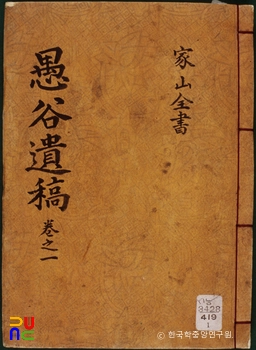 家山全書
愚谷遺稿 卷之一
3428
419
1
ⓒ 한국학중앙연구원